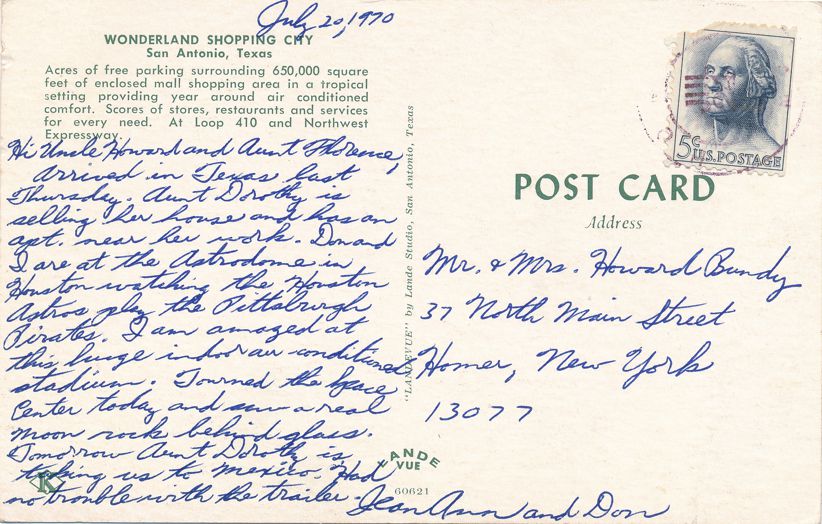 July 20, 1970
WONDERLAND SHOPPING CITY
San Antonio, Texas
Acres of free parking surrounding 650,000 square
feet of enclosed mall shopping area in a tropical
setting providing year around air conditioned
comfort. Scores of stores, restaurants and services
for every need. At Loop 410 and Northwest
Expressway.
Hi Uncle Howard and Aunt Florence,
Arrived in Texas last
Thursday. Aunt Dorothy is
selling her house and has an
apt. near her work. Don and
I are at the Astrodome in
Houston watching the Houston
Astros play the Pittsburgh
Pirates. I am amazed at
this huge indoor air conditioned
stadium. Tourned the Space
Center today and saw a real
moon rock behind glass.
Tomorrow Aunt Dorothy is
taking us to Mexico. Had
no trouble with the trailer.
Jean Ann and Don
"LANDEVUE" by Lande Studio, San Antonio, Texas
LANDE
VUE
60621
K
5c
U.S. POSTAGE
POST CARD
Address
Mr. & Mrs. Howard Bundy
37 North Main Street
Homer, New York
13077